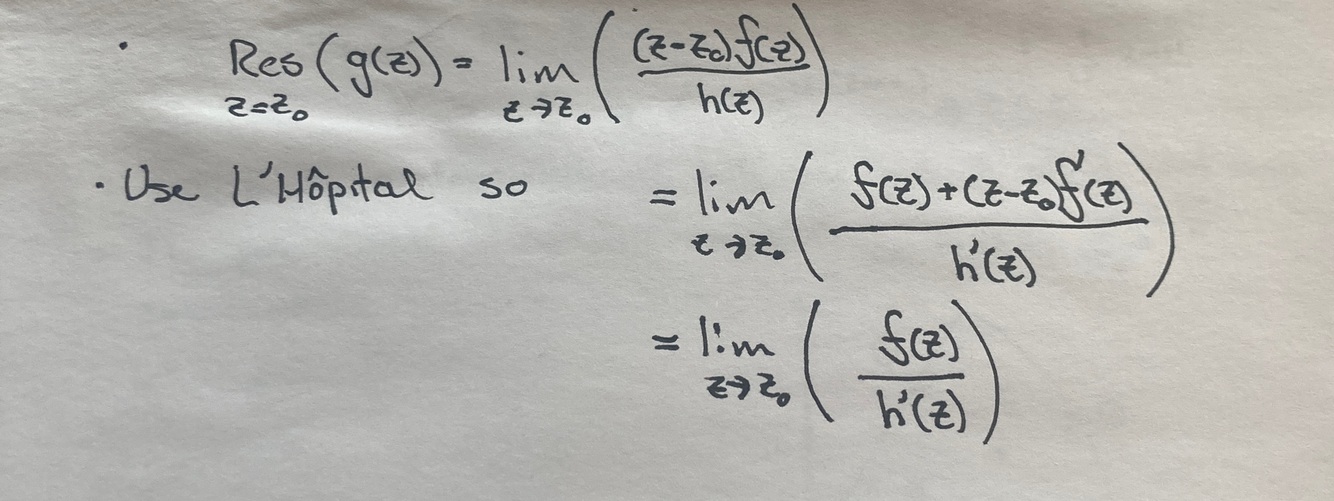 · Res_{z=z₀} (g(z)) = lim_{z→z₀} ( (z-z₀)f(z) / h(z) )
· Use L'Hôpital so = lim_{z→z₀} ( f(z)+(z-z₀)f'(z) / h'(z) )
= lim_{z→z₀} ( f(z) / h'(z) )